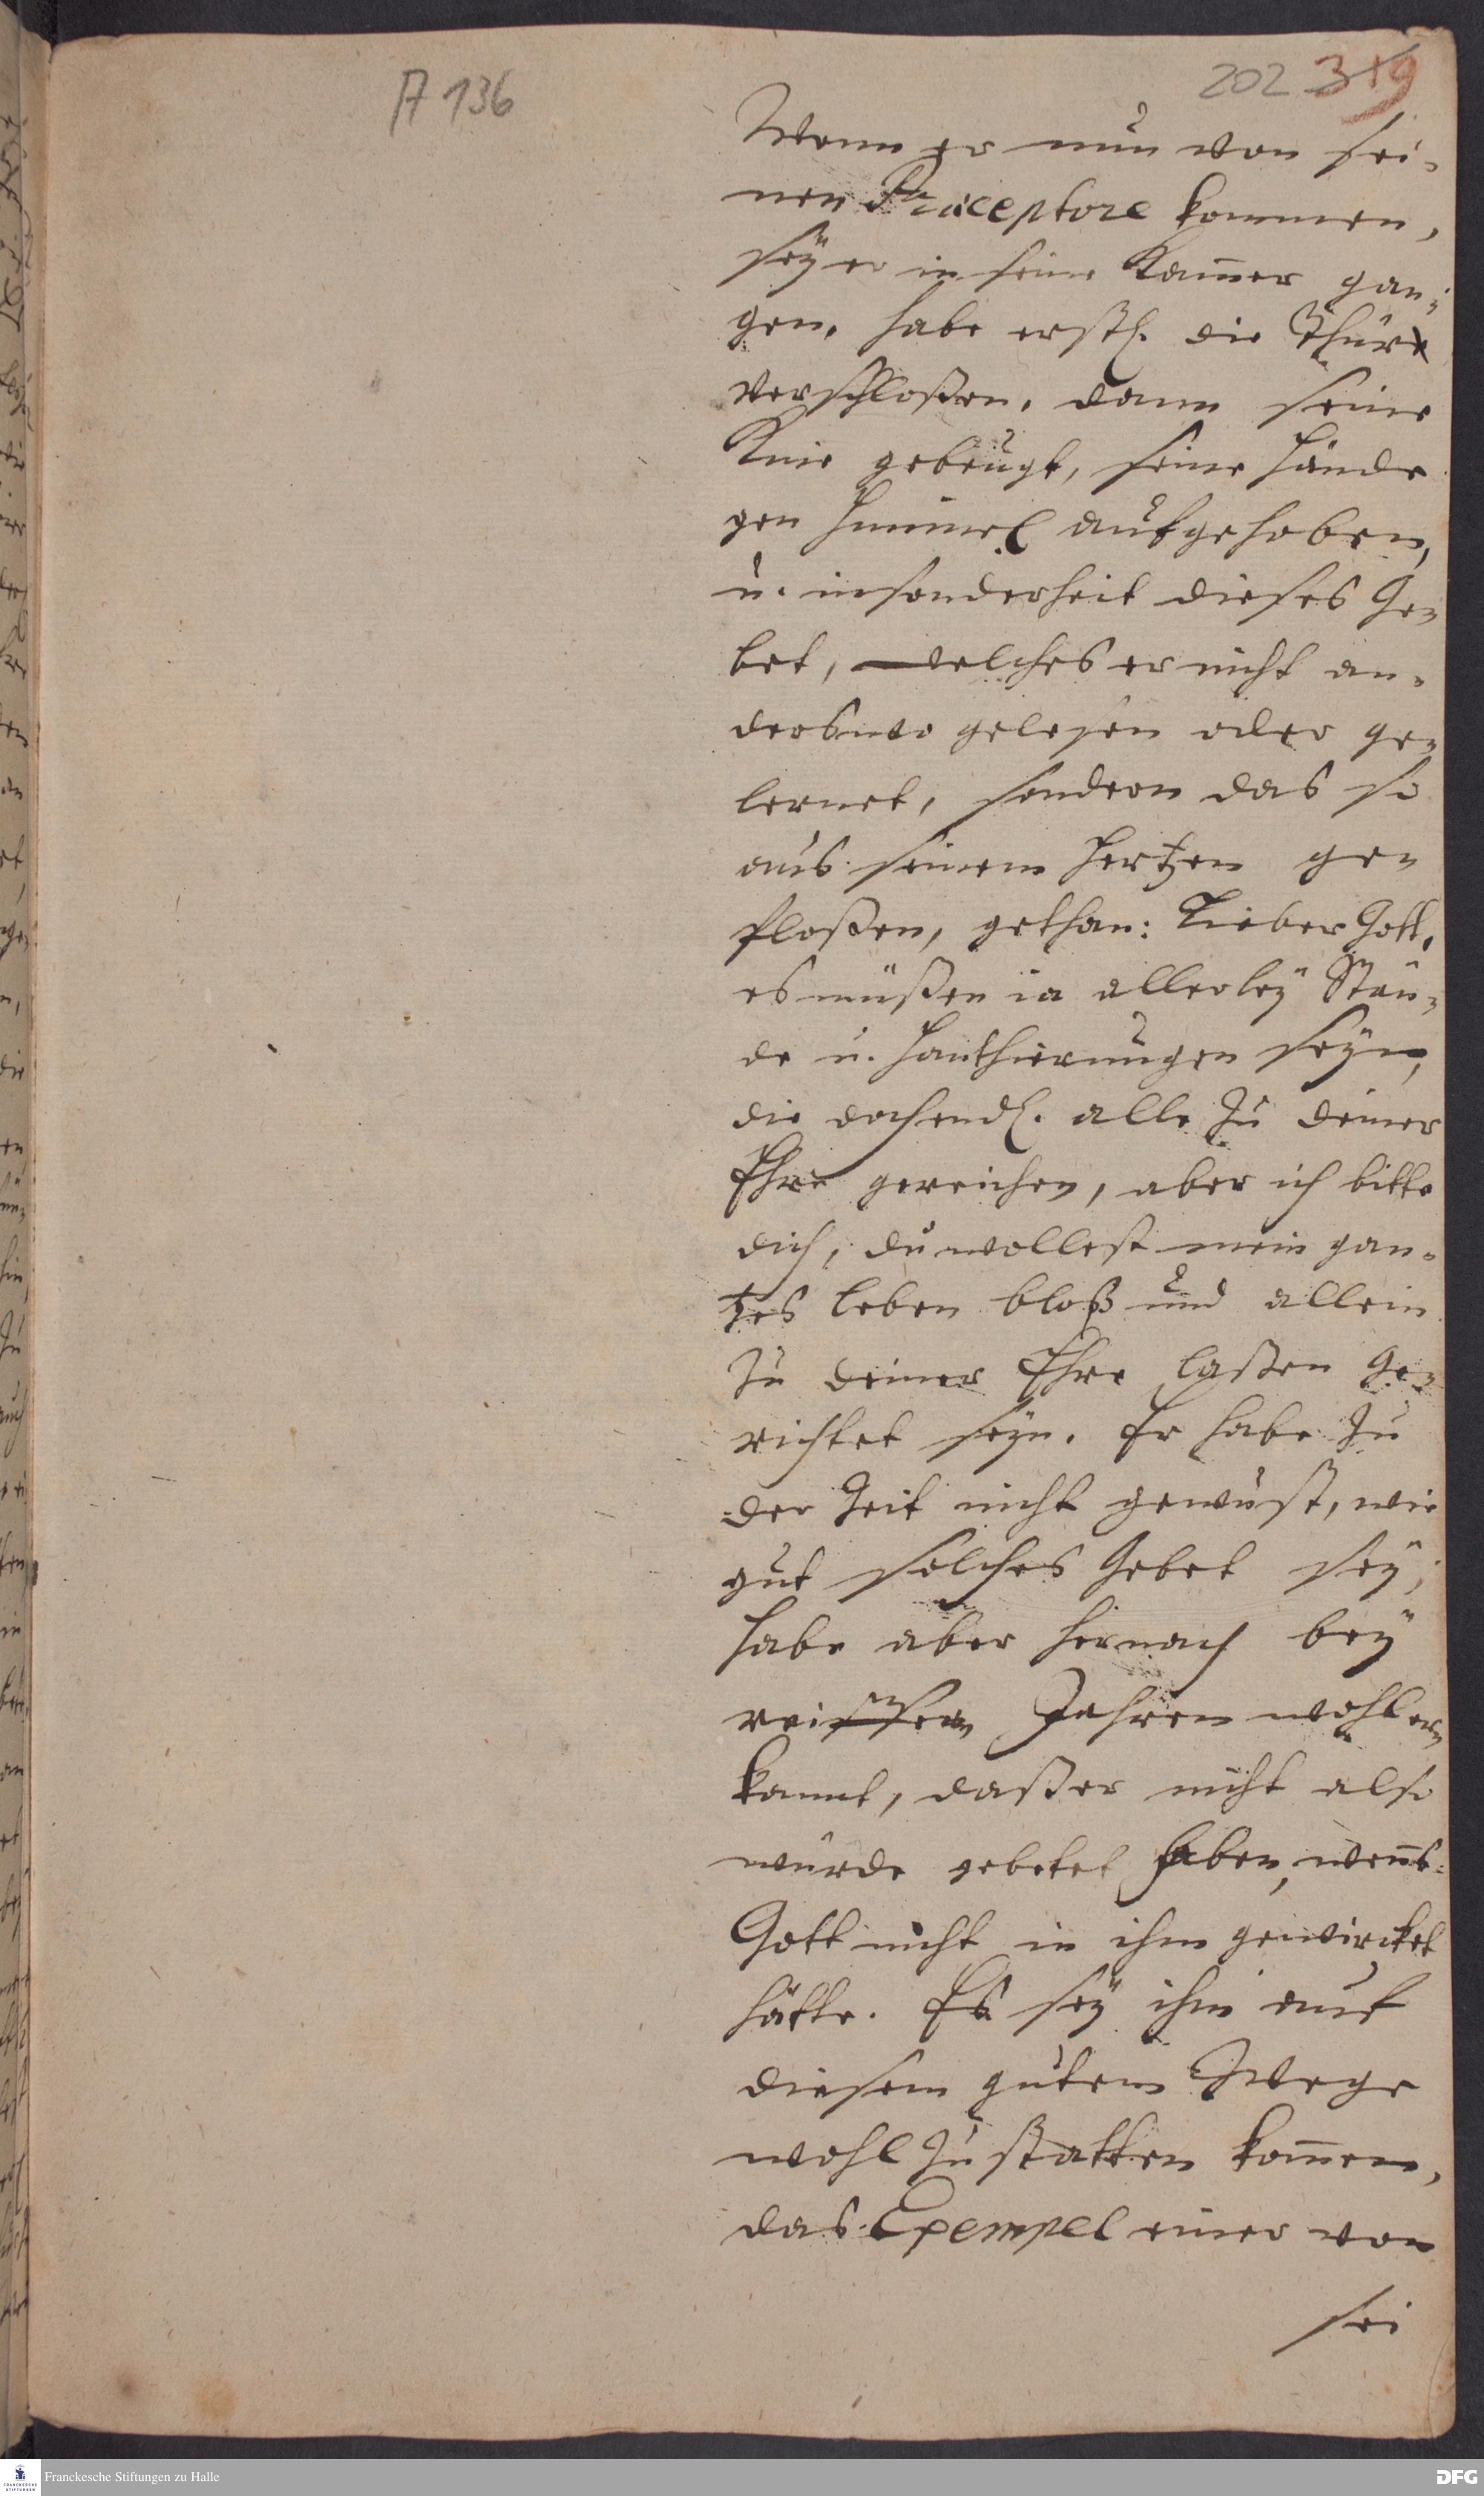 A 136
202 319
Wenn er nun von sei-
nen Præceptore kommen,
sey er in seine Kam̄er gan-
gen, habe erstl. die Thüre
verschloßen, dann seine
Knie gebeugt, seine Hände
gen Himmel aufgehoben,
u. insonderheit dieses Ge-
bet, welches er nicht an-
derswo gelesen oder ge-
lernet, sondern das so
aus seinem Hertzen ge-
floßen, gethan: Lieber Gott,
es müßen ia allerley Stän-
de u. Hanthierungen seyn,
die doch endl. alle zu deiner
Ehre gereichen, aber ich bitte
dich, du wollest mein gan-
tzes leben bloß und allein
zu deiner Ehre laßen ge-
richtet seyn. Er habe zu
der Zeit nicht gewust, wie
gut solches Gebet sey,
habe aber hernach bey
reiffern Jahren wohl er-
kannt, daß er nicht also
würde gebetet haben, wen̄s
Gott nicht in ihm gewircket
hätte. Es sey ihm auf
diesem gutem Wege
wohl zu statten kom̄en,
das Exempel einer von
sei
Franckesche Stiftungen zu Halle
DFG